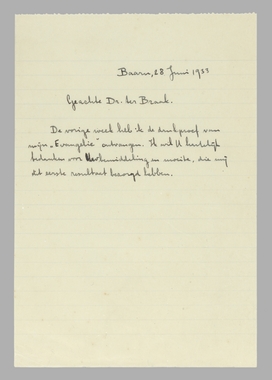 Baarn, 28 Juni 1933
Geachte Dr. ter Braak.
De vorige week heb ik de drukproef van
mijn „Evangelie" ontvangen. Ik wil U hartelijk
bedanken voor Uw bemiddeling en moeite, die mij
dit eerste resultaat bezorgd hebben.